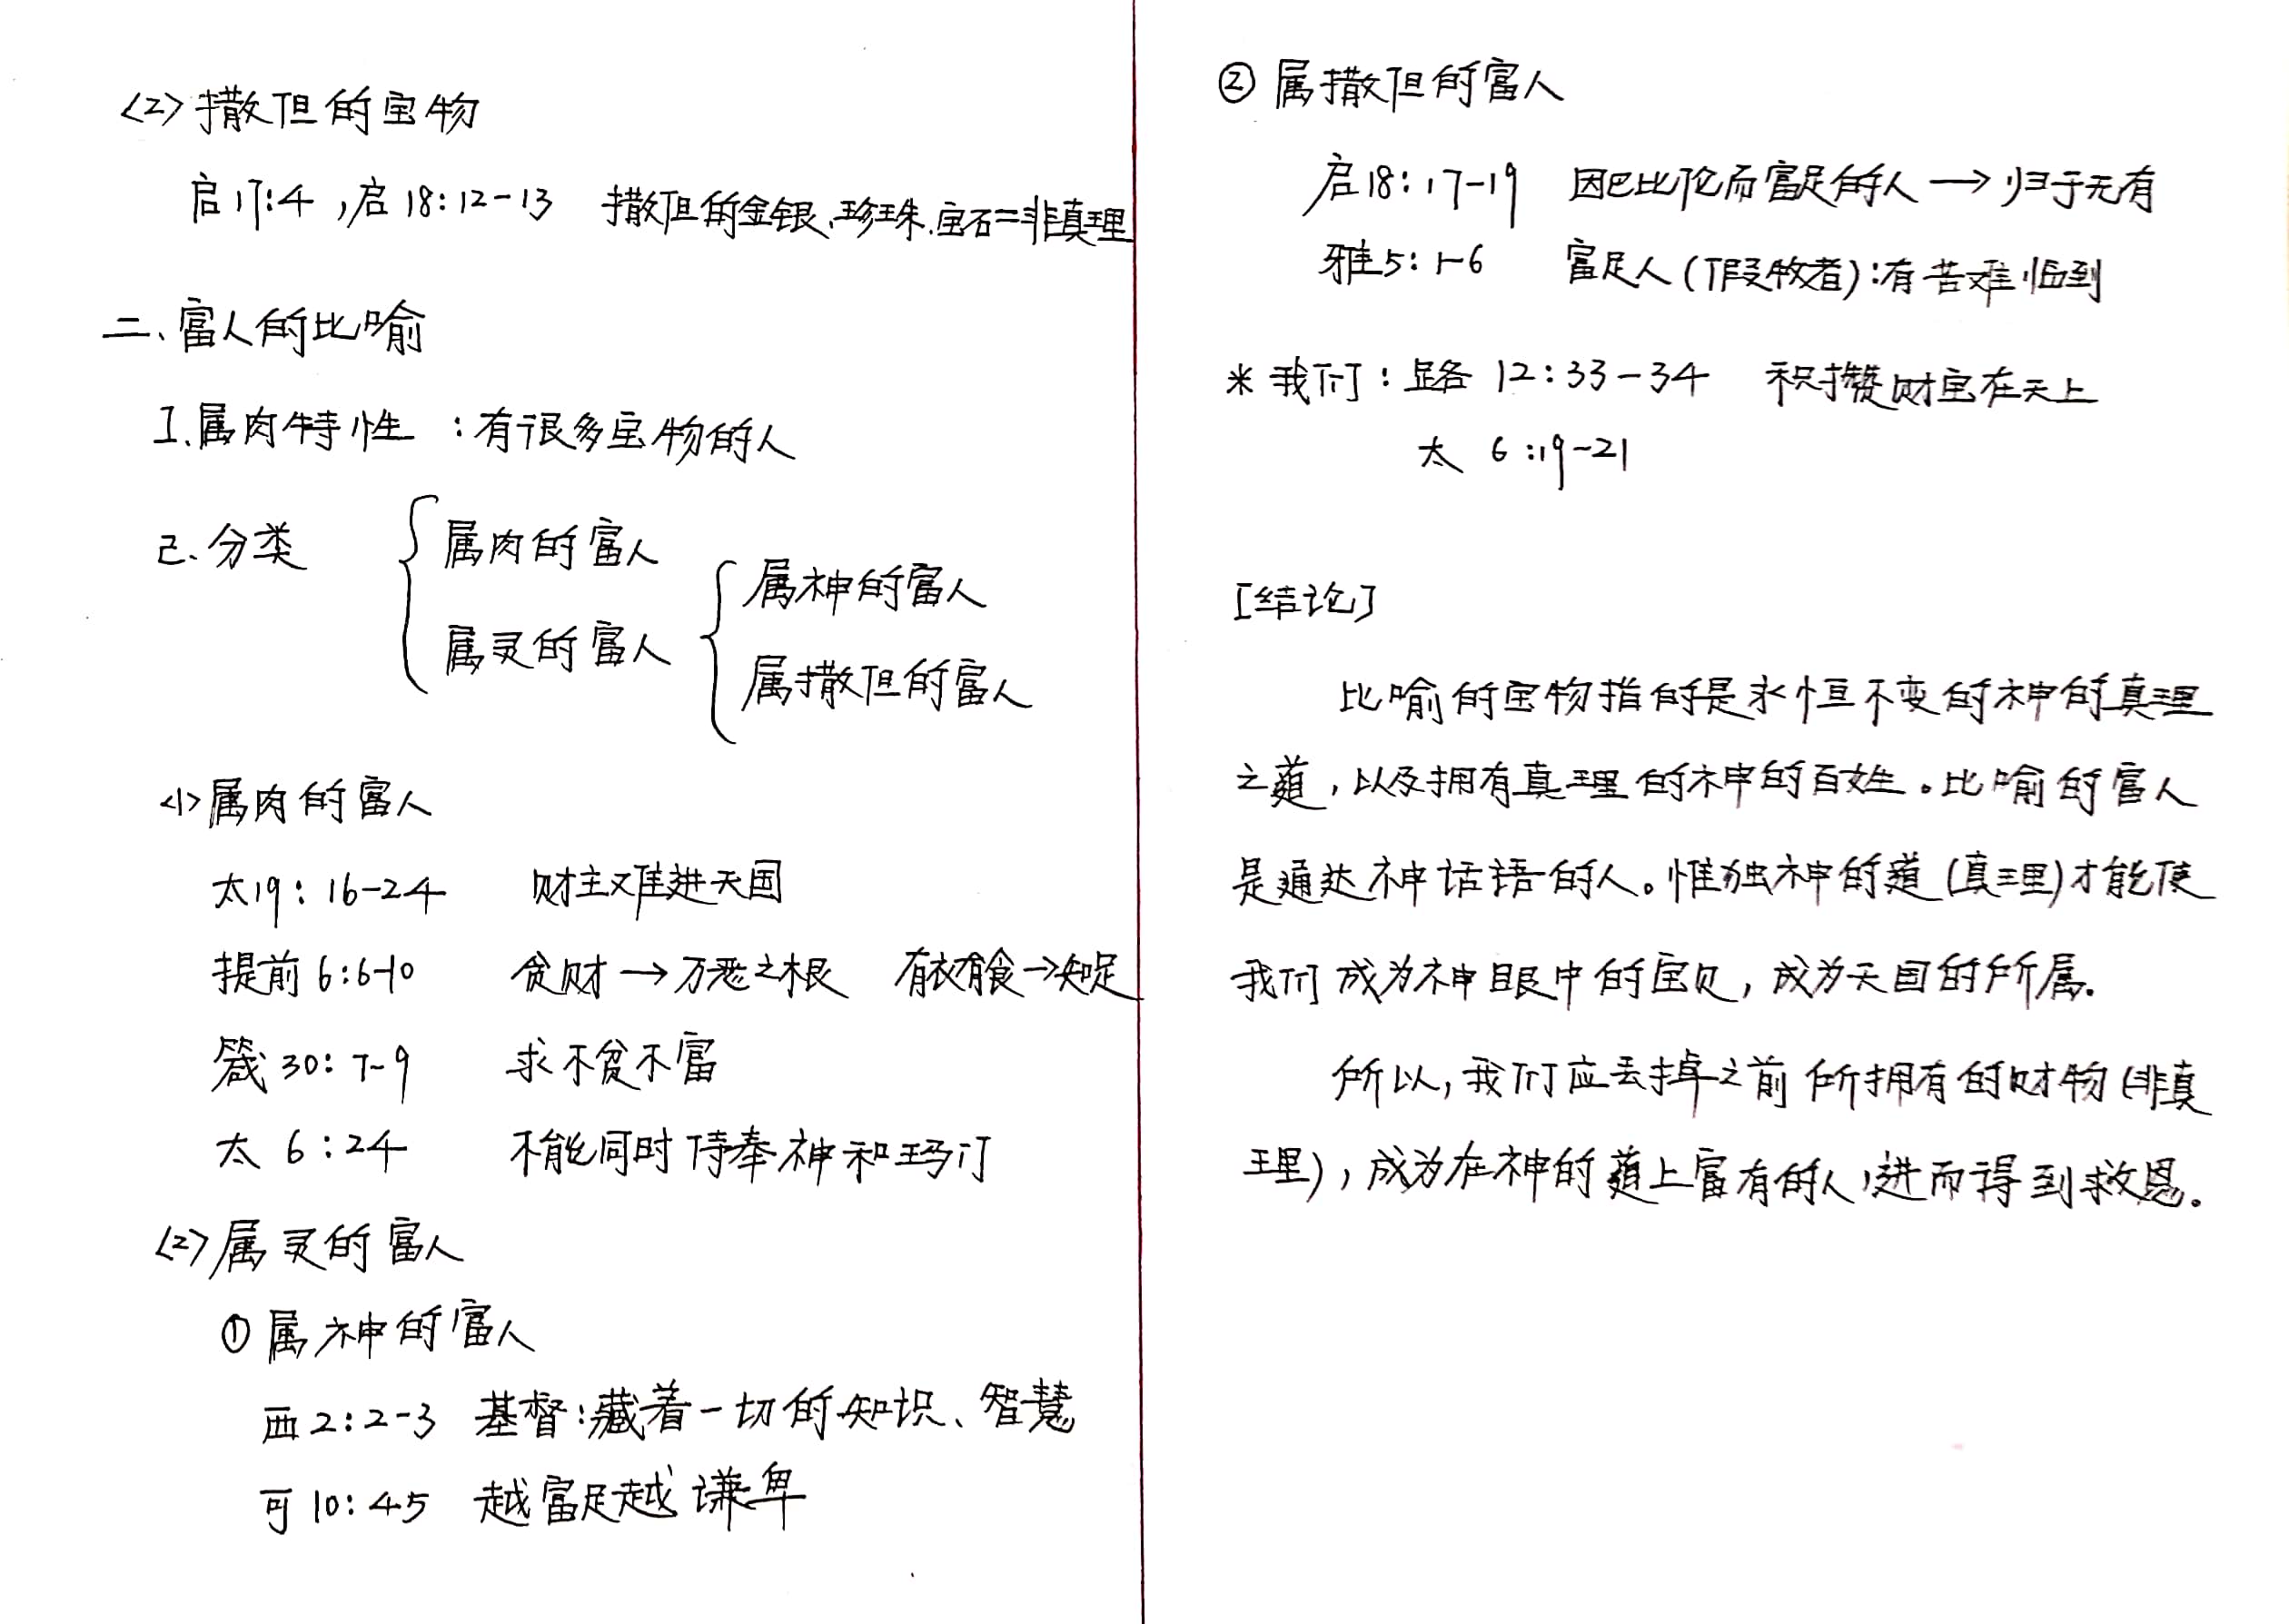 <2> 撒但的宝物
启17:4，启18:12-13 撒但的金银、珍珠、宝石=非真理
二、富人的比喻
1. 属肉特性：有很多宝物的人
2. 分类
属肉的富人
属灵的富人
属神的富人
属撒但的富人
<1> 属肉的富人
太19:16-24 财主难进天国
提前6:6-10 贪财→万恶之根 有衣有食→知足
箴30:7-9 求不贫不富
太6:24 不能同时侍奉神和玛门
<2> 属灵的富人
① 属神的富人
西2:2-3 基督:藏着一切的知识、智慧
可10:45 越富足越谦卑
② 属撒但的富人
启18:17-19 因巴比伦而富足的人→归于无有
雅5:1-6 富足人(假牧者):有苦难临到
* 我们：路12:33-34 积攒财宝在天上
太6:19-21
[结论]
比喻的宝物指的是永恒不变的神的真理
之道，以及拥有真理的神的百姓。比喻的富人
是通达神话语的人。惟独神的道(真理)才能使
我们成为神眼中的宝贝，成为天国的所属.
所以，我们应丢掉之前所拥有的财物(非真
理)，成为在神的道上富有的人，进而得到救恩。